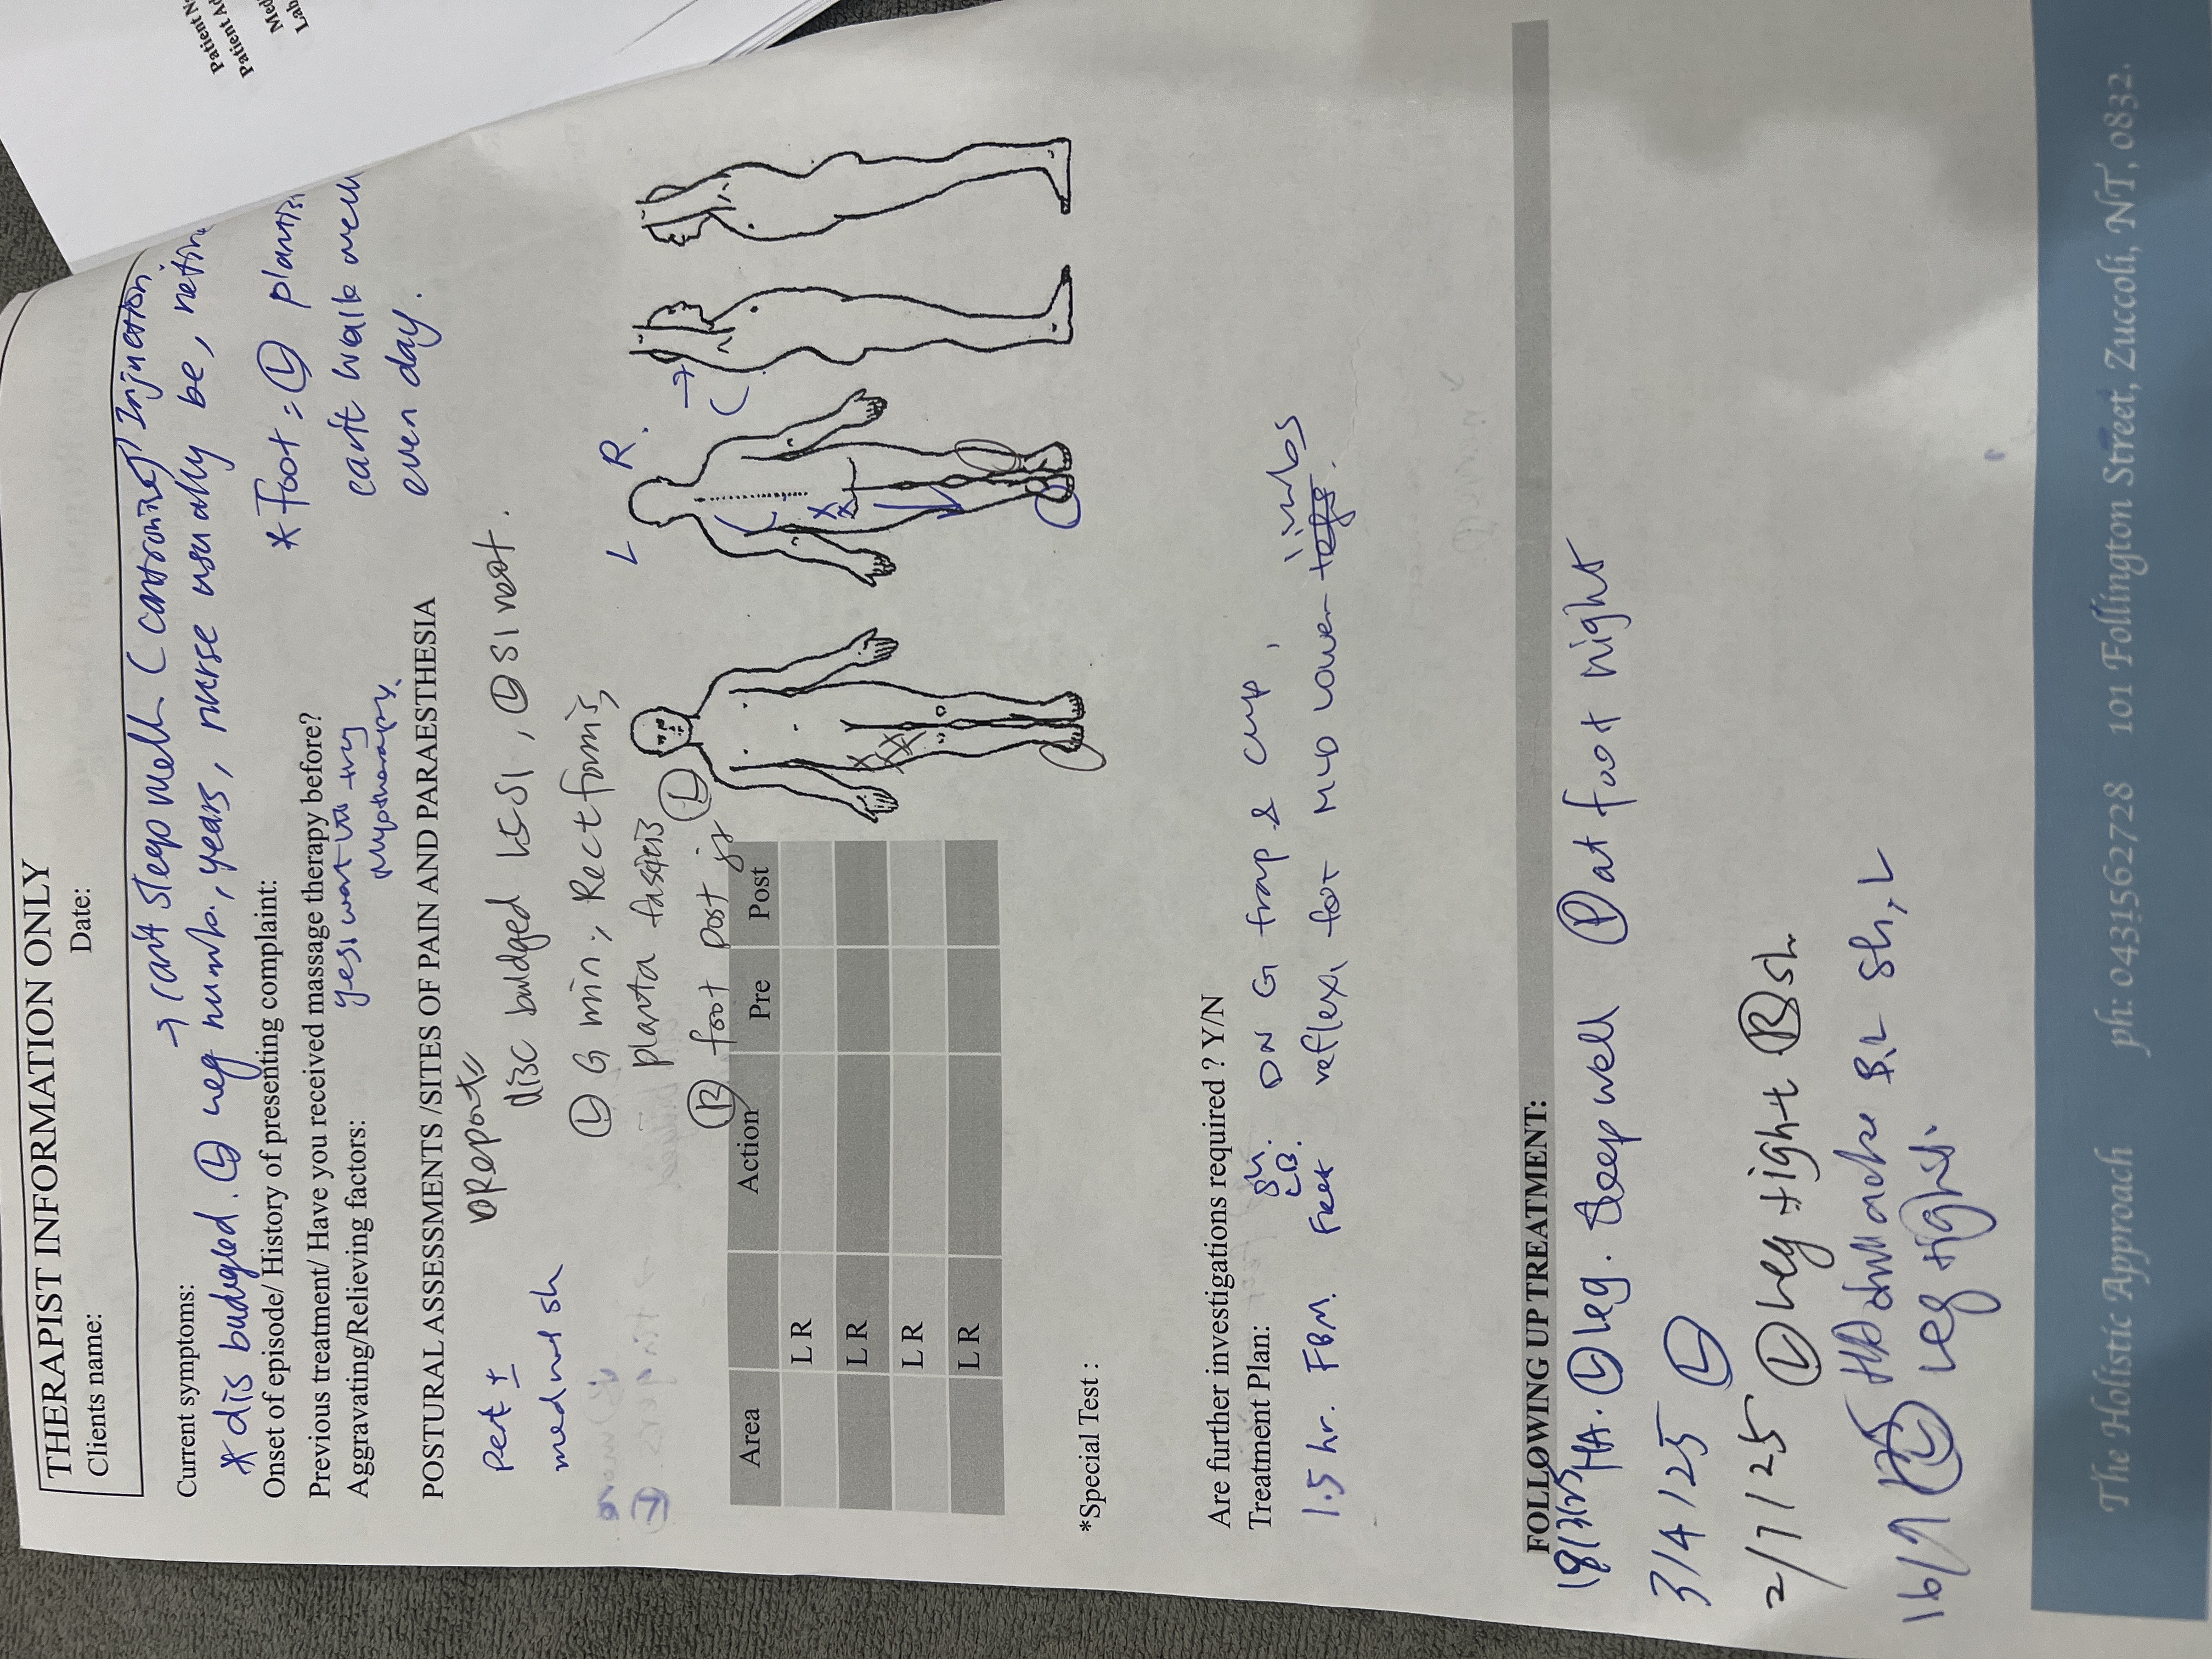 Patient N
Patient Ad
Med
Lab
THERAPIST INFORMATION ONLY
Clients name: Date:
→ can't sleep well (cortisone) Injuection
Current symptoms:
* dis buldgled. Ⓛ leg numb., years, nurse usually be,
Onset of episode/ History of presenting complaint:
* Foot = Ⓛ planti
can't walk well
even day.
Previous treatment/ Have you received massage therapy before?
yes, want to try
myotherapy.
Aggravating/Relieving factors:
POSTURAL ASSESSMENTS /SITES OF PAIN AND PARAESTHESIA
Report
disc buldged L5S1, Ⓛ S1 root.
Pect ±
med nal sh
Ⓛ G min, Rectformis
planta fasciis
Ⓡ foot post Ⓛ
L R.
Area Action Pre Post
L R
L R
L R
L R
*Special Test :
Are further investigations required ? Y/N
Treatment Plan:
sh.
LB.
DN G trap & cup,
1.5 hr. FBM. Feet reflexi for MLD lower limbs
FOLLOWING UP TREATMENT:
HA. Ⓛ leg. sleep well Ⓟ at foot night
3/4/25 Ⓛ
2/7/25 Ⓛ leg tight Ⓡ sh.
16/7 Ⓛ B.L sh, L
leg tight.
The Holistic Approach ph: 0431562728 101 Follington Street, Zuccoli, NT, 0832.